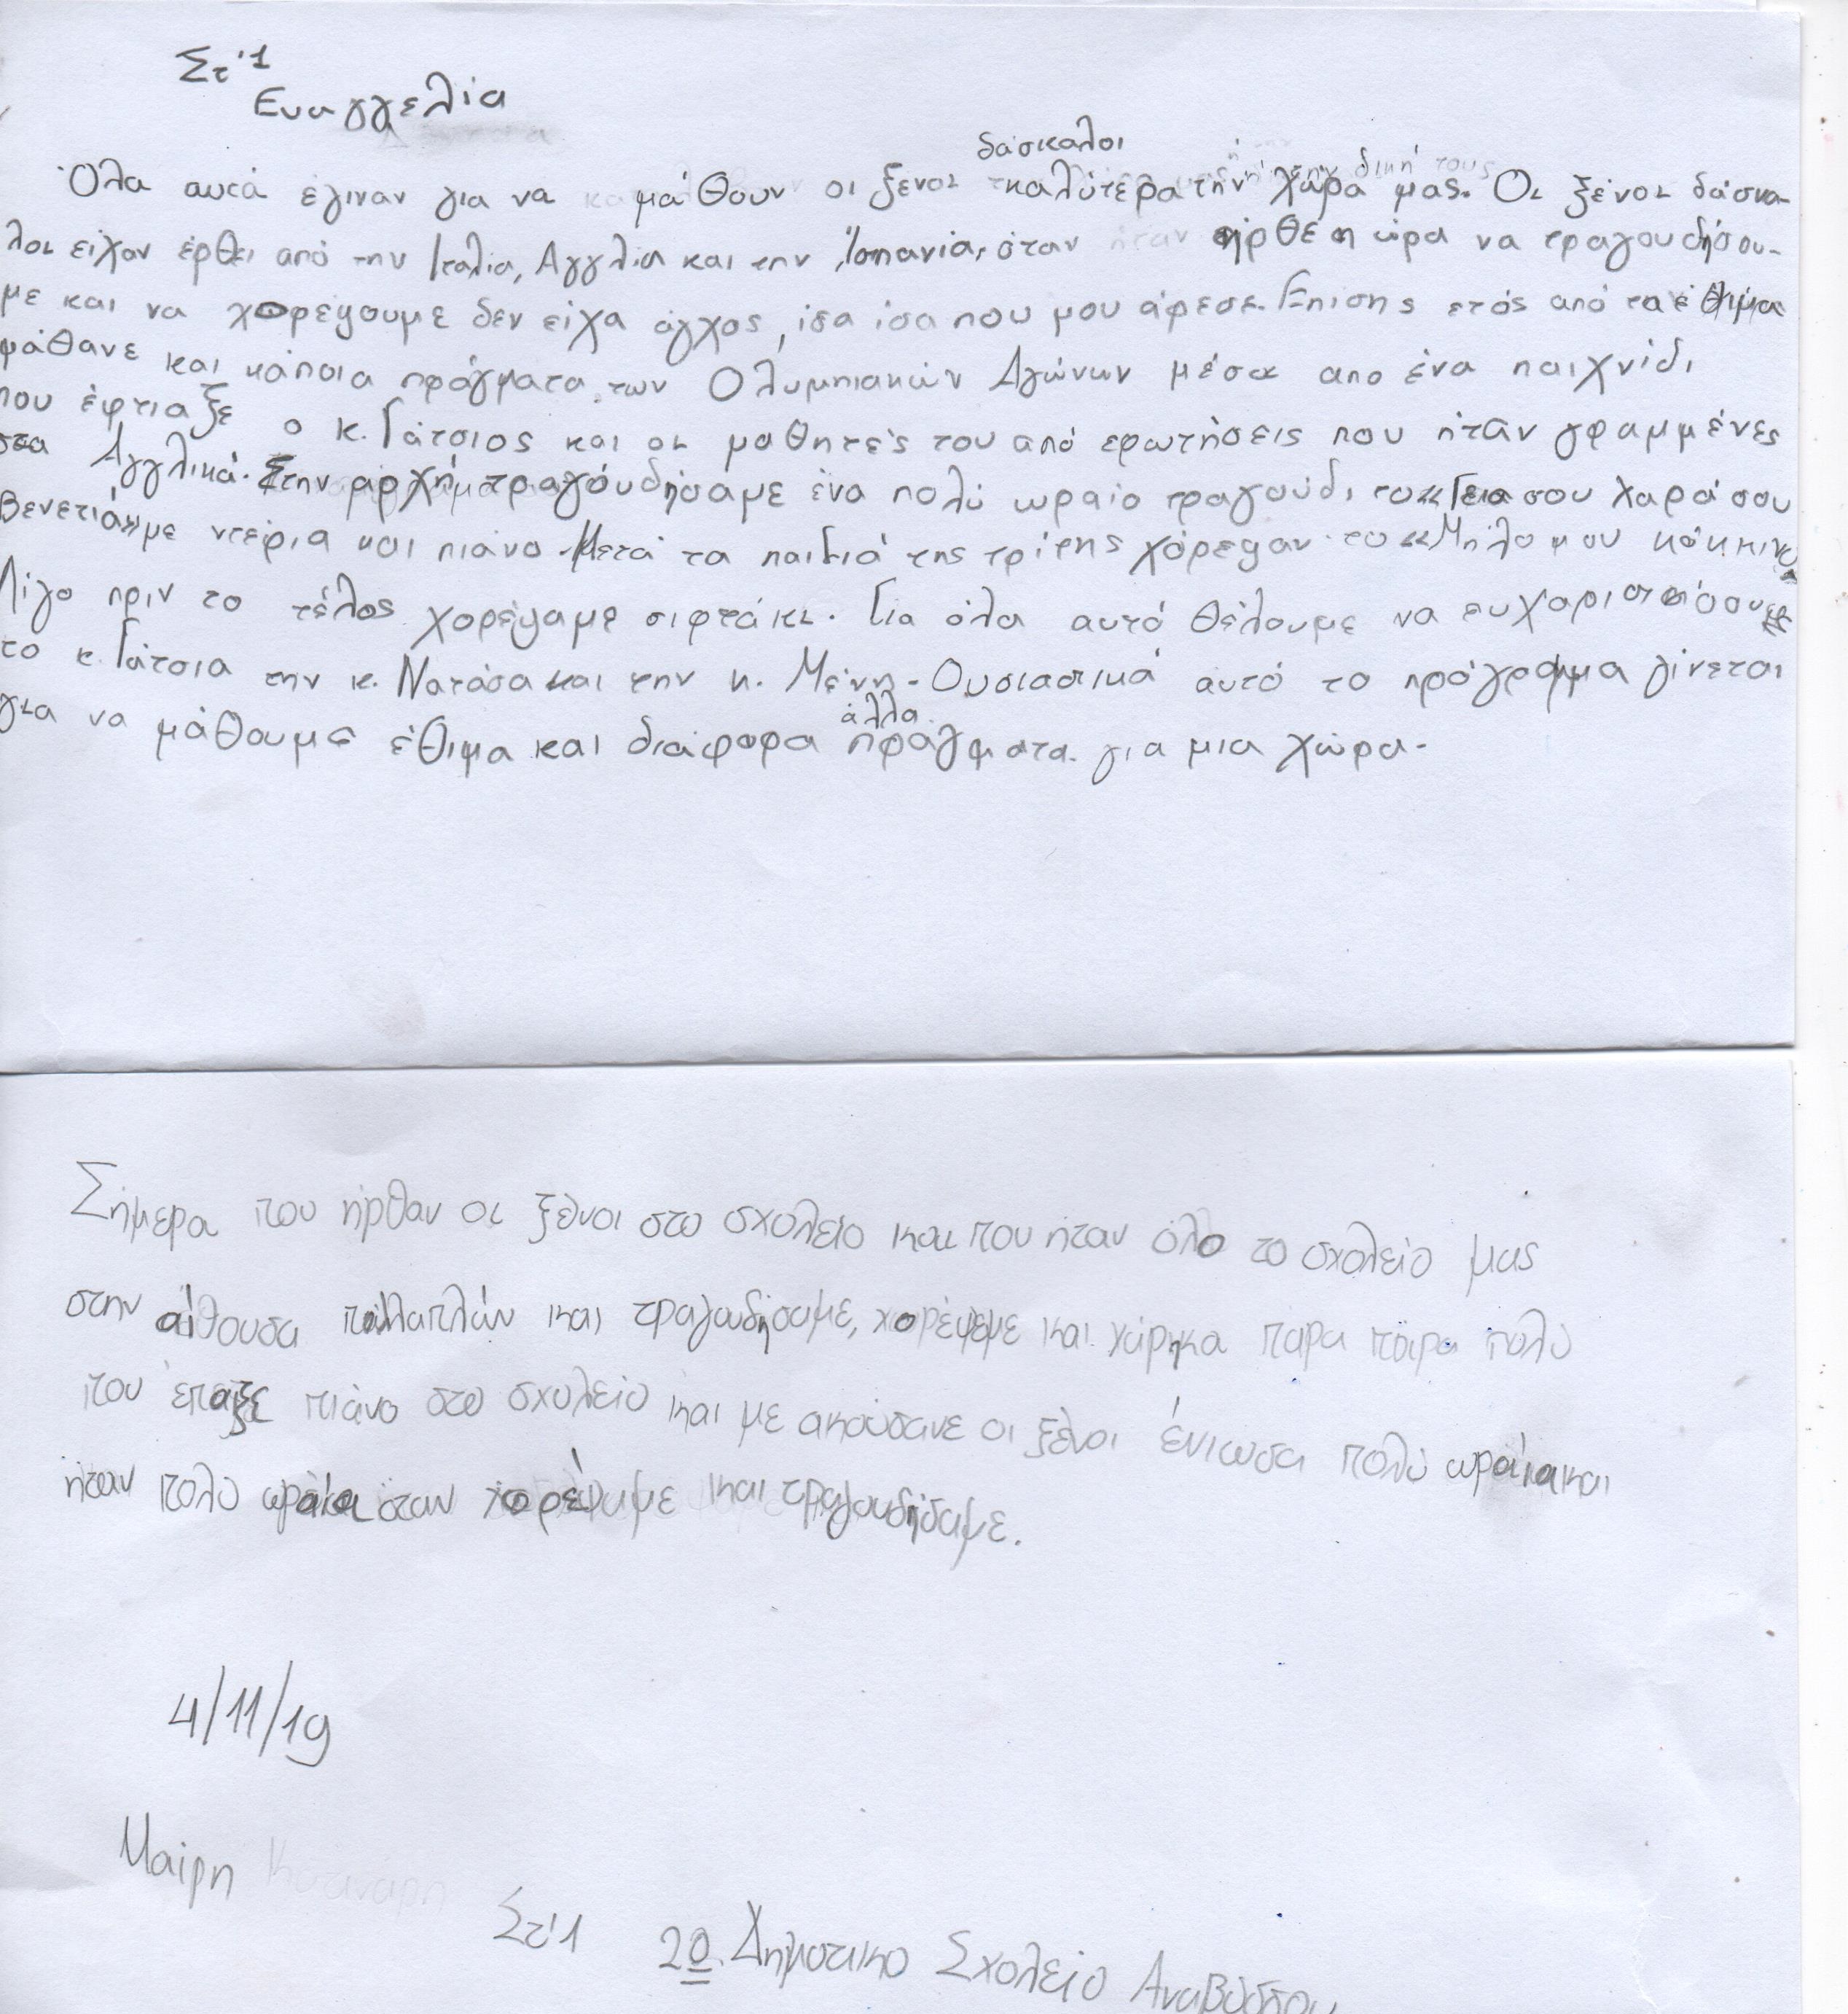 Στ'1
Ευαγγελία
δάσκαλοι
Όλα αυτά έγιναν για να μάθουν οι ξένοι καλύτερα την χώρα μας. Οι ξένοι δάσκα-
λοι είχαν έρθει από την Ιταλία, Αγγλία και την Ισπανία, όταν ήρθε η ώρα να τραγουδήσου-
με και να χορέψουμε δεν είχα άγχος, ίσα ίσα που μου άρεσε. Επίσης ετός από τα έθιμα
μάθανε και κάποια πράγματα των Ολυμπιακών Αγώνων μέσα απο ένα παιχνίδι
που έφτιαξε ο κ. Γάτσιος και οι μαθητές του από ερωτήσεις που ήταν γραμμένες
στα Αγγλικά. Στην αρχή τραγουδήσαμε ένα πολύ ωραίο τραγούδι το «Γεια σου χαρά σου
Βενετιά» με ντέφια και πιάνο. Μετά τα παιδιά της τρίτης χόρεψαν το «Μήλο μου κόκκινο»
Λίγο πριν το τέλος χορέψαμε σιρτάκι. Για όλα αυτά θέλουμε να ευχαριστήσουμε
το κ. Γάτσια την κ. Νατάσα και την κ. Μένη. Ουσιαστικά αυτό το πρόγραμμα γίνεται
για να μάθουμε έθιμα και διάφορα άλλα πράγματα για μια χώρα.
Σήμερα που ήρθαν οι ξένοι στο σχολείο και που ήταν όλο το σχολείο μας
στην αίθουσα πολλαπλών και τραγουδήσαμε, χορέψεμε και χάρηκα πάρα πάρα πολύ
που έπαιξε πιάνο στο σχολείο και με ακούσανε οι ξένοι ένιωσα πολύ ωραία και
ήταν πολύ ωραία όταν χορέψαμε και τραγουδήσαμε.
4/11/19
Μαίρη
Στ'1 2ο Δημοτικο Σχολείο Αναβύσσου